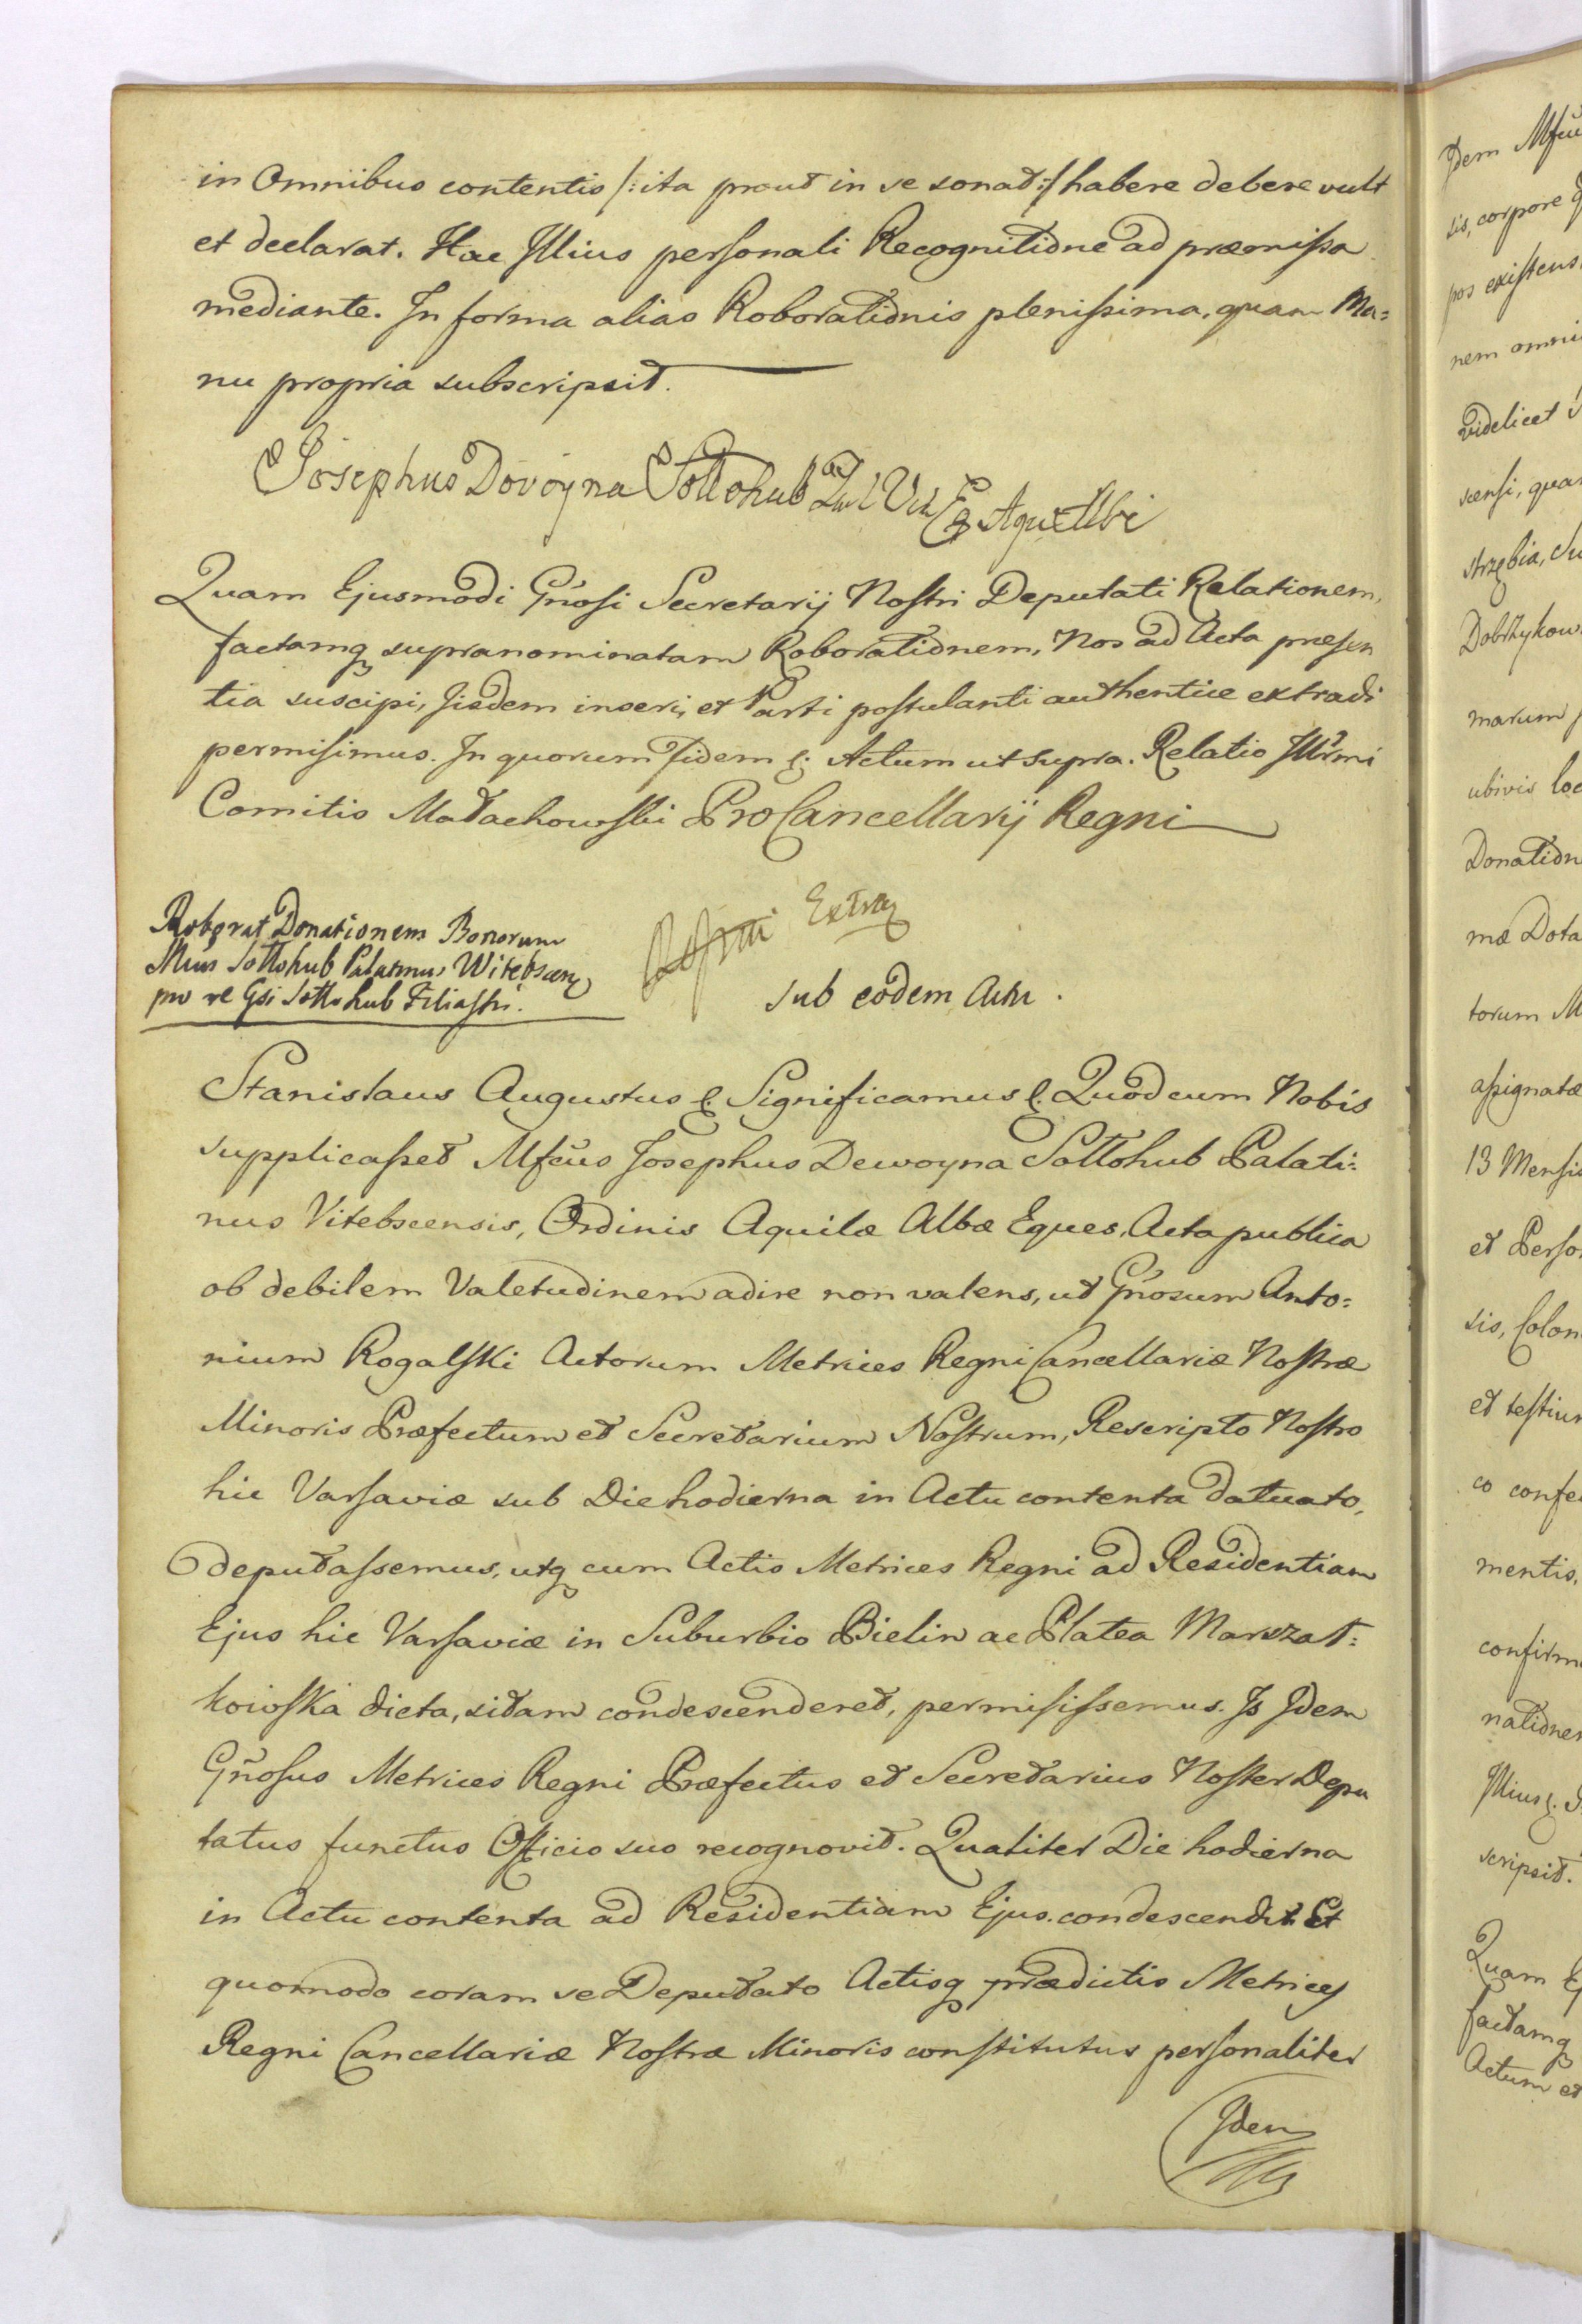 in Omnibus contentis /: ita prout in se sonat :/ habere debere vult
et declarat. Hac Illius personali Recognitione ad præmissa
mediante. In forma alias Roborationis plenissima, quam Ma=
nu propria subscripsit.
Josephus Dovoyna Sollohub Eq Aquæ Albi
Quam Ejusmodi Gnosi Secretarij Nostri Deputati Relationem,
factamq supranominatam Roborationem, Nos ad Acta præsen
tia suscipi, Iisdem inseri, et Parti postulanti authentice extradi
permisimus. In quorum Fidem &. Actum ut supra. Relatio Illrmi
Comitis Małachowski ProCancellarij Regni
Roborat Donationem Bonorum
Mcus Sottohub Palatinus Witebscen
pro re Gsi Sottohub Filiastri.
Extra
sub eodem Actu.
Stanislaus Augustus &. Significamus &. Quod cum Nobis
supplicasset Mfcus Josephus Dewoyna Sołłohub Palati:
nus Vitebscensis, Ordinis Aquilæ Albæ Eques, Acta publica
ob debilem Valetudinem adire non valens, ut Gnosum Anto:
nium Rogalski Actorum Metrices Regni Cancellariæ Nostræ
Minoris Præfectum et Secretarium Nostrum, Rescripto Nostro
hic Varsaviæ sub Die hodierna in Actu contenta datuato,
deputassemus, utq cum Actis Metrices Regni ad Residentiam
Ejus hic Varsaviæ in Suburbio Bielin ac Platea Marszał:
koioska dicta, sitam condescenderet, permisissemus. Is Idem
Gnosus Metrices Regni Præfectus et Secretarius Noster Depu
tatus functus Officio suo recognovit. Qualiter Die hodierna
in Actu contenta ad Residentiam Ejus condescendit. Et
quomodo coram se Deputato Actisq prædictis Metrices
Regni Cancellariæ Nostræ Minoris constitutus personaliter
Idem
Idem Mfcu
sis, corpore
pos existens
nem omni
videlicet
scensi, qua
strzębia, Su
Dobrzykow
marum
ubivis loc
Donation
mæ Dota
torum M
assignatæ
13 Mensis
et Perso
sis, Colon
et testiu
co confe
mentis,
confirm
nationem
Illius &.
scripsit.
Quam E
factamq
Actum et